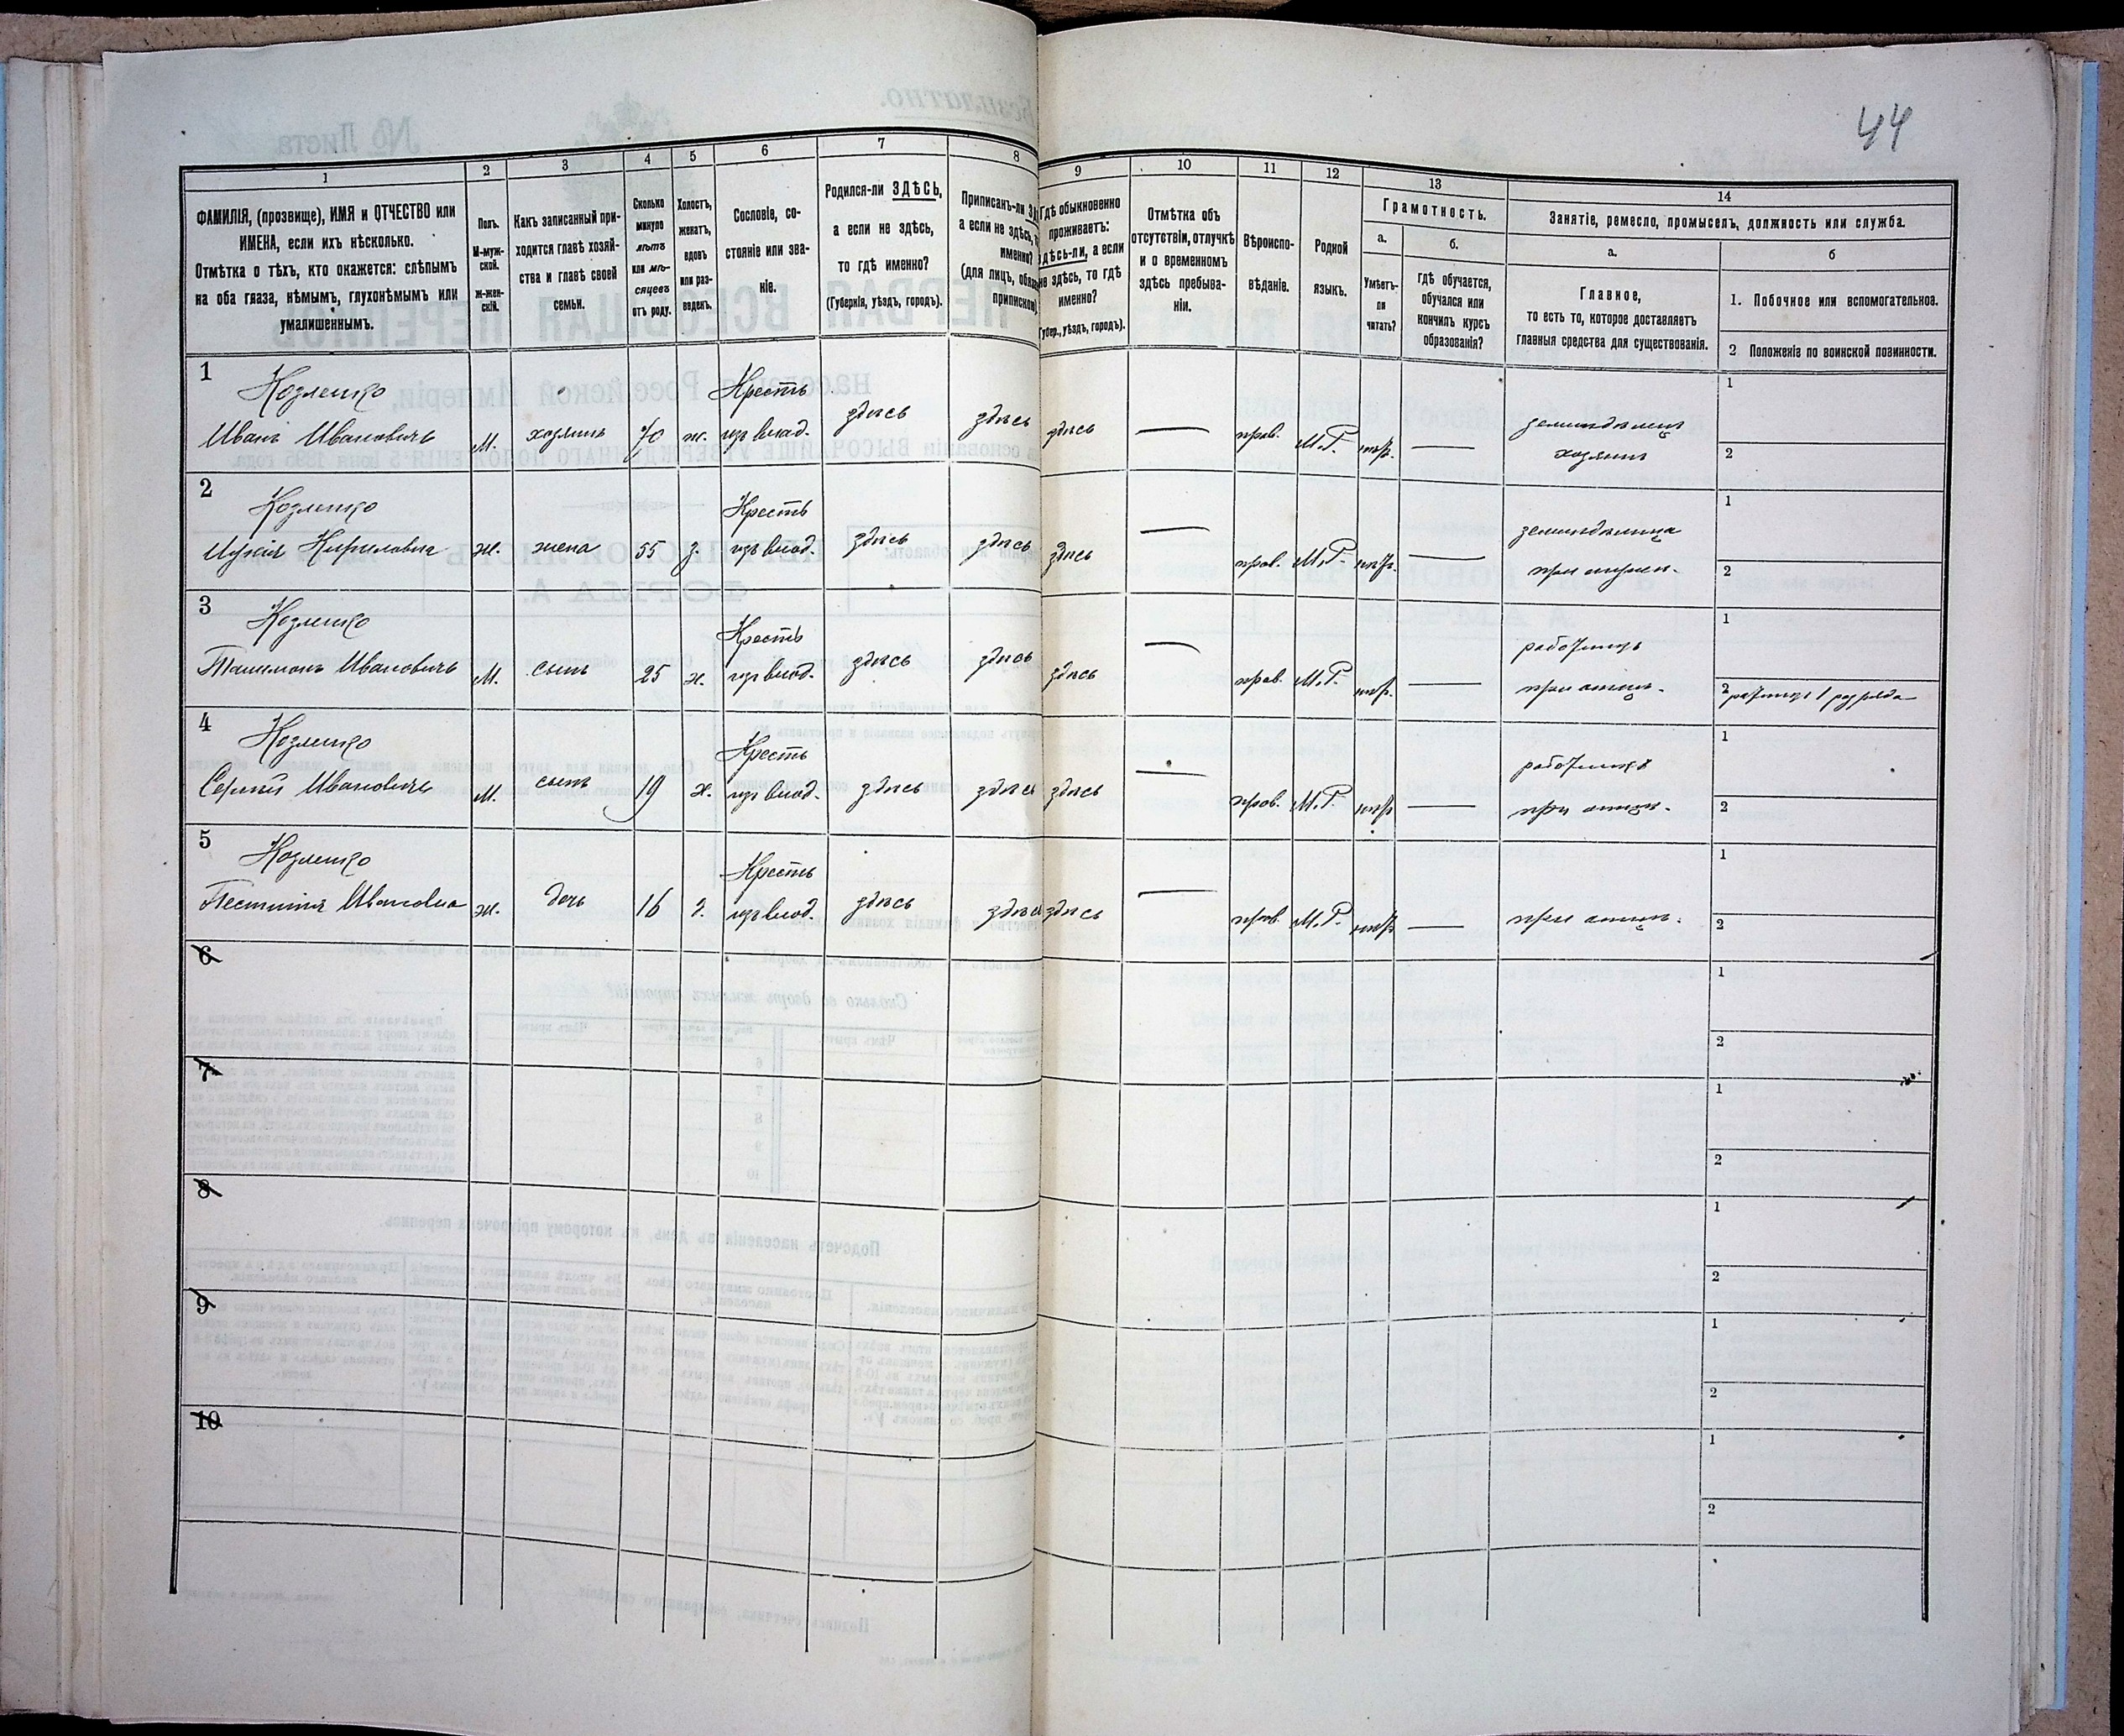 44
1
2
3
4
5
6
7
8
9
10
11
12
13
14
ФАМИЛІЯ, (прозвище), ИМЯ и ОТЧЕСТВО или
ИМЕНА, если ихъ нѣсколько.
Отмѣтка о тѣхъ, кто окажется: слѣпымъ
на оба глаза, нѣмымъ, глухонѣмымъ или
умалишеннымъ.
Полъ.
М-муж-
ской.
Ж-жен-
скій.
Какъ записанный при-
ходится главѣ хозяй-
ства и главѣ своей
семьи.
Сколько
минуло
лѣтъ
или мѣ-
сяцевъ
отъ роду.
Холостъ,
женатъ,
вдовъ
или раз-
веденъ.
Сословіе, со-
стояніе или зва-
ніе.
Родился-ли ЗДѢСЬ,
а если не здѣсь,
то гдѣ именно?
(Губернія, уѣздъ, городъ).
Приписанъ-ли
а если не здѣсь,
именно?
(для лицъ,
припискою)
Гдѣ обыкновенно
проживаетъ:
здѣсь-ли, а если
не здѣсь, то гдѣ
именно?
(Губер., уѣздъ, городъ).
Отмѣтка объ
отсутствіи, отлучкѣ
и о временномъ
здѣсь пребыва-
ніи.
Вѣроиспо-
вѣданіе.
Родной
языкъ.
Грамотность.
а.
Умѣетъ-
ли
читать?
б.
Гдѣ обучается,
обучался или
кончилъ курсъ
образованія?
Занятіе, ремесло, промыселъ, должность или служба.
а.
Главное,
то есть то, которое доставляетъ
главныя средства для существованія.
б
1. Побочное или вспомогательное.
2 Положеніе по воинской повинности.
1
Козленко
Иванъ Ивановичъ
М.
хозяинъ
70
ж.
Крестъ
изъ влад.
здѣсь
здѣсь
здѣсь
прав.
М.Р.
земледѣлецъ
хозяинъ
1
2
2
Козленко
Кириловна
ж.
жена
55
з.
Крестъ
изъ влад.
здѣсь
здѣсь
здѣсь
прав.
М.Р.
земледѣлица
при
1
2
3
Козленко
Ивановичъ
М.
сынъ
25
х.
Крестъ
изъ влад.
здѣсь
здѣсь
здѣсь
прав.
М.Р.
работникъ
при отцѣ.
1
2 ратникъ 1 разряда
4
Козленко
Сергѣй Ивановичъ
М.
сынъ
19
х.
Крестъ
изъ влад.
здѣсь
здѣсь
здѣсь
прав.
М.Р.
работникъ
при отцѣ.
1
2
5
Козленко
Ивановна
ж.
дочь
16
д.
Крестъ
изъ влад.
здѣсь
здѣсь
здѣсь
прав.
М.Р.
при отцѣ.
1
2
6
1
2
7
1
2
8
1
2
9
1
2
10
1
2